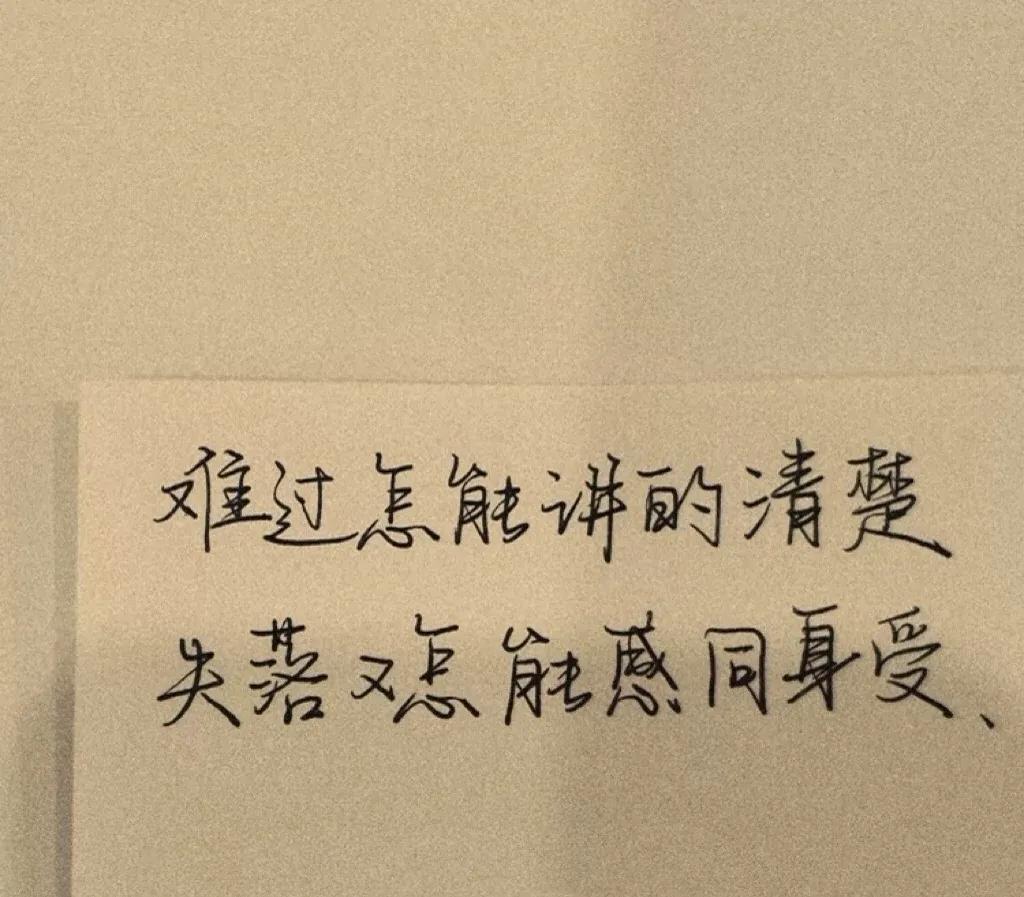 难过怎能讲的清楚
失落又怎能感同身受、